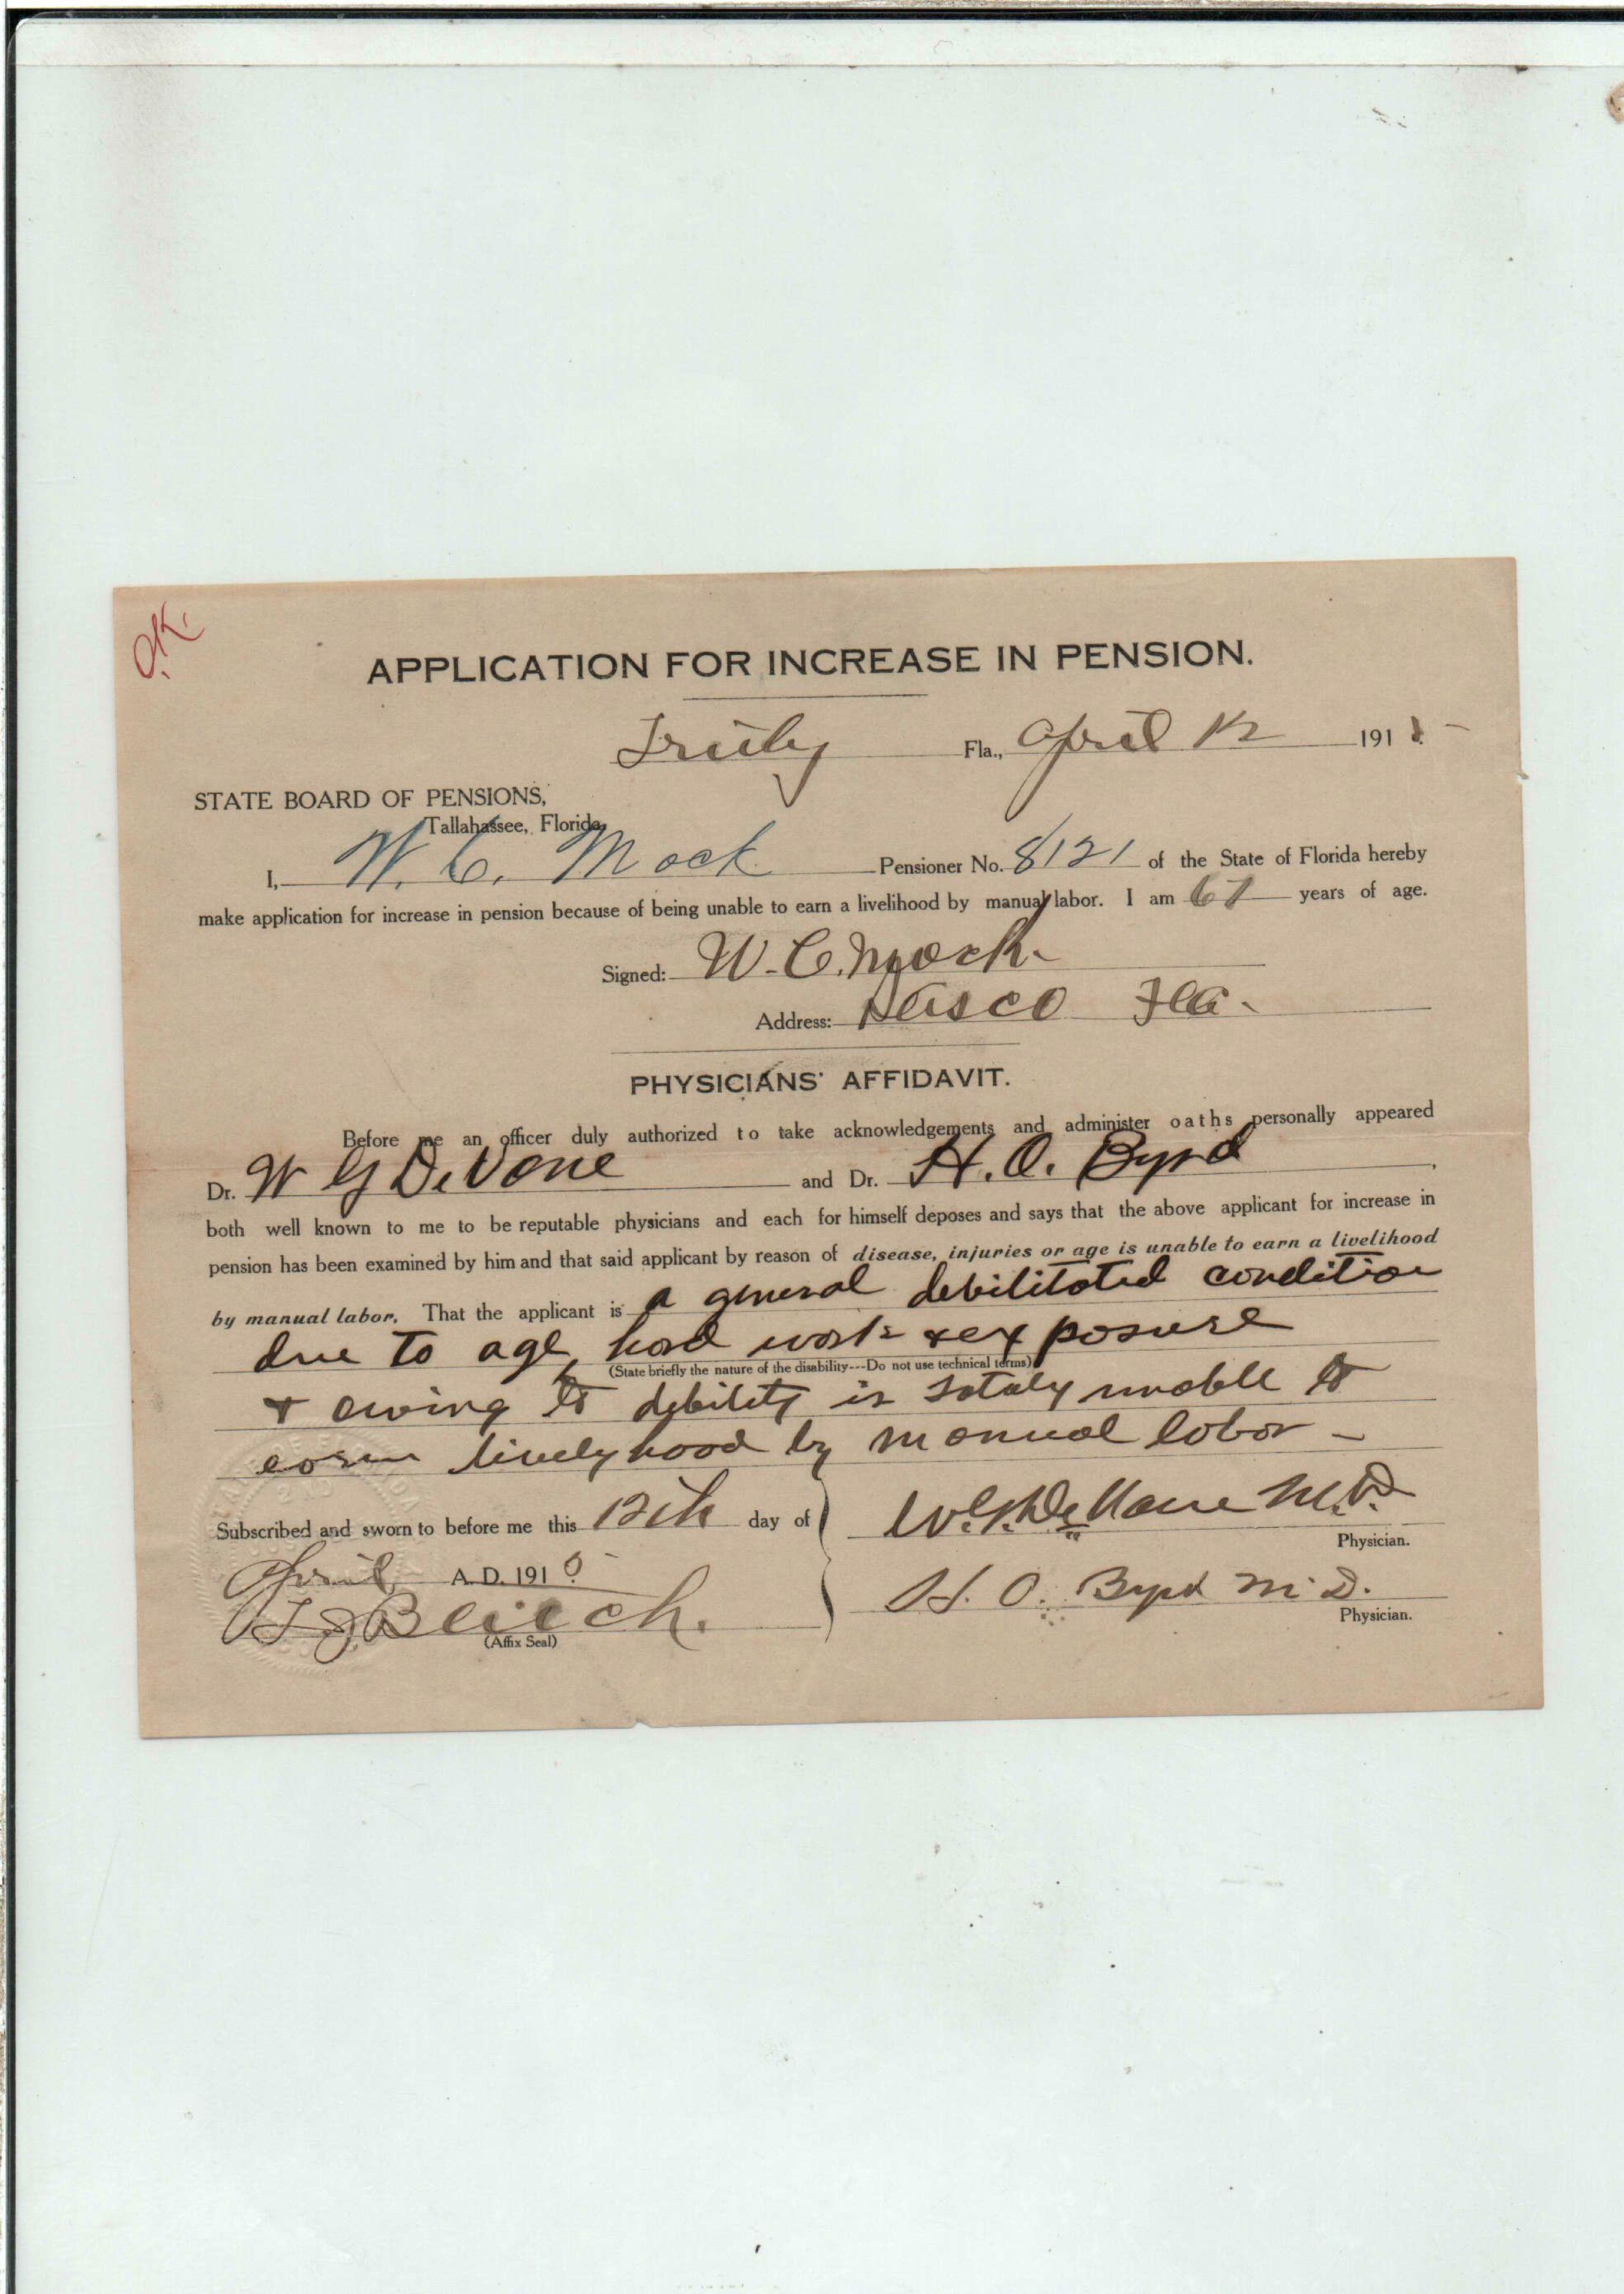 O.K.
APPLICATION FOR INCREASE IN PENSION.
Fla., April 12 191
STATE BOARD OF PENSIONS,
Tallahassee, Florida,
I, W. C. Mock Pensioner No. 8121 of the State of Florida hereby
make application for increase in pension because of being unable to earn a livelihood by manual labor. I am years of age.
Signed: W. C. Mock
Address: Fla.
PHYSICIANS' AFFIDAVIT.
Before me an officer duly authorized to take acknowledgements and administer oaths personally appeared
Dr. W G DeVane and Dr. H. O. Byrd,
both well known to me to be reputable physicians and each for himself deposes and says that the above applicant for increase in
pension has been examined by him and that said applicant by reason of disease, injuries or age is unable to earn a livelihood
by manual labor. That the applicant is a general debilitated condition
due to age, hard work & exposure
(State briefly the nature of the disability---Do not use technical terms)
& owing to debility is totaly unable to
earn livelyhood by manual labor -
Subscribed and sworn to before me this 12th day of W. G. DeVane M.D.
Physician.
April A. D. 191
H. O. Byrd M.D.
Physician.
(Affix Seal)